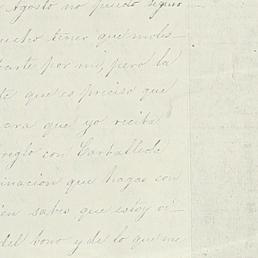 Agosto no puedo seguir
mucho tener que moles-
tarte por mi, pero la
que es preciso que
para que yo reciba
arreglo con Carballeda
inacion que hagas con
ien sabes que estoy vi-
del bono y de lo que me